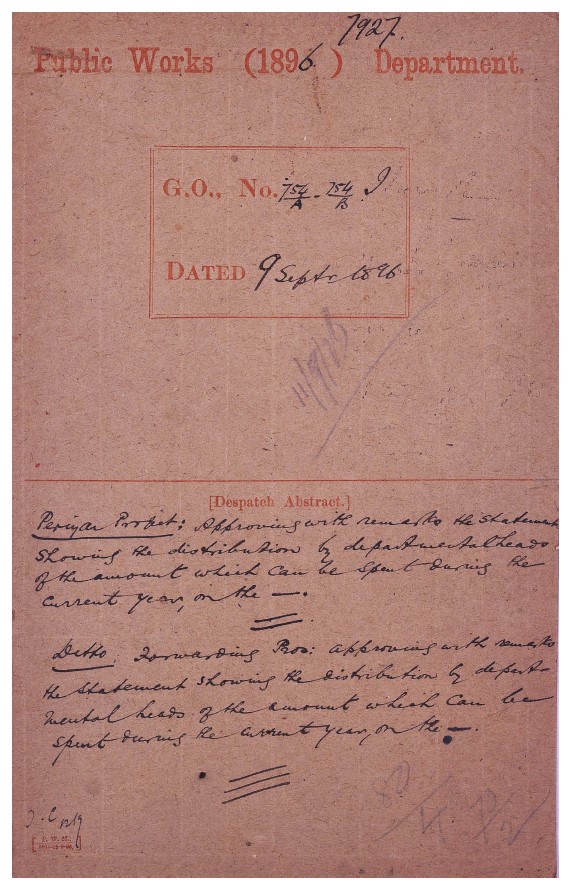 7927.
Public Works (1896) Department.
G.O., No. 754/A - 754/B I
DATED 9 Septr 1896
11/9/96
[Despatch Abstract.]
Periyar Project: Approving with remarks the Statement
showing the distribution by departmental heads
of the amount which can be spent during the
current year, on the —.
Ditto. Forwarding Pros: approving with remarks
the statement showing the distribution by depart-
mental heads of the amount which can be
spent during the current year, on the —.